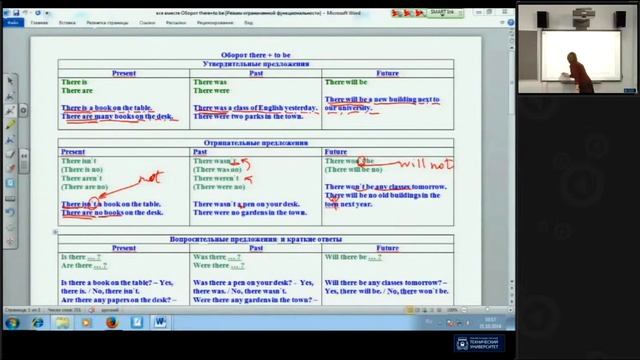 все вместе Оборот there+to be [Режим ограниченной функциональности] - Microsoft Word
SMART Ink
Разметка страницы
Ссылки
Рассылки
Рецензирование
Оборот there + to be
Утвердительные предложения
Present
Past
Future
There is
There was
There will be
There are
There were
There is a book on the table.
There was a class of English yesterday.
There will be a new building next to
There are many books on the desk.
There were two parks in the town.
our university.
Отрицательные предложения
Present
Past
Future
There isn`t
There wasn`t
There won`t be
will not
(There is no)
(There was no)
(There will be no)
There aren`t
There weren`t
(There are no)
(There were no)
not
There won`t be any classes tomorrow.
There isn`t a book on the table.
There wasn`t a pen on your desk.
There will be no old buildings in the
There are no books on the desk.
There were no gardens in the town.
next year.
Вопросительные предложения и краткие ответы
Present
Past
Future
Is there ... ?
Was there ... ?
Will there be ... ?
Are there ... ?
Were there ... ?
Is there a book on the table? – Yes,
Was there a pen on your desk? – Yes,
Will there be any classes tomorrow? –
there is. / No, there isn`t.
there was. / No, there wasn`t.
Yes, there will be. / No, there won`t be.
Are there any papers on the desk? –
Were there any gardens in the town? –
русский
100%
ТЕХНИЧЕСКИЙ
УНИВЕРСИТЕТ